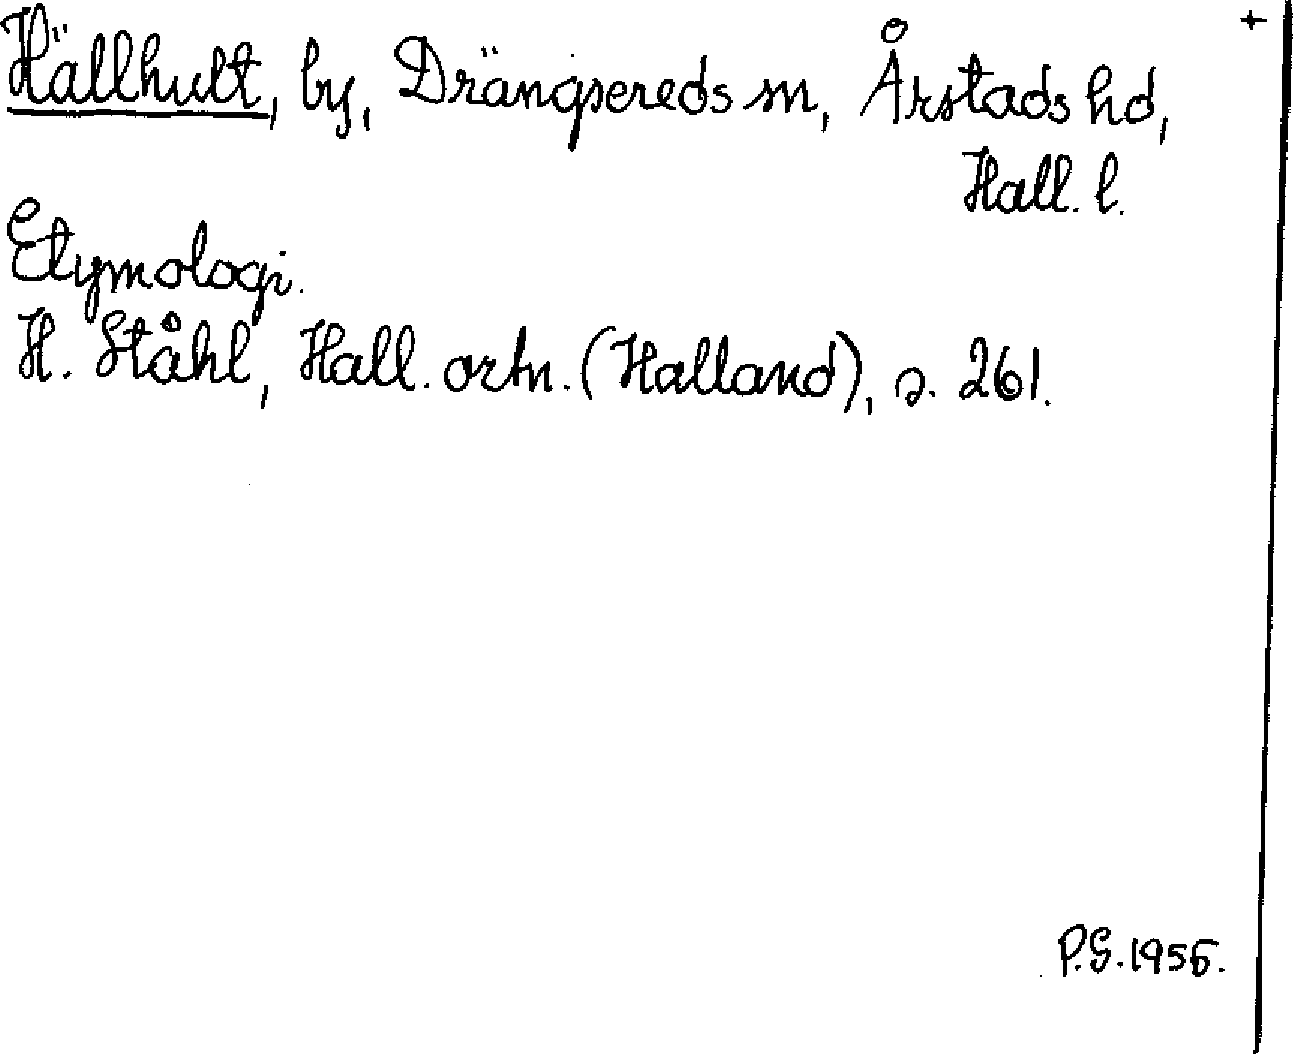 Hällhult, by, Drängsereds sn, Årstads hd, +
Hall. l.
Etymologi.
H. Ståhl, Hall. ortn. (Halland), s. 261.
P.G. 1956.